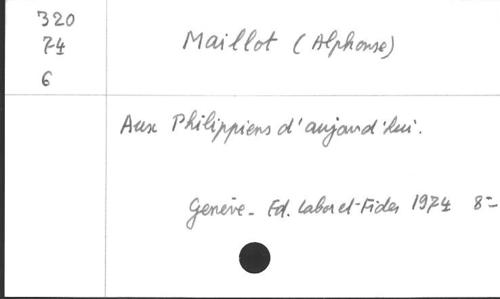 320
74
6
Maillot (Alphonse)
Aux Philippiens d'aujourd'hui.
Genève - Ed. Labor et Fides 1974 8=